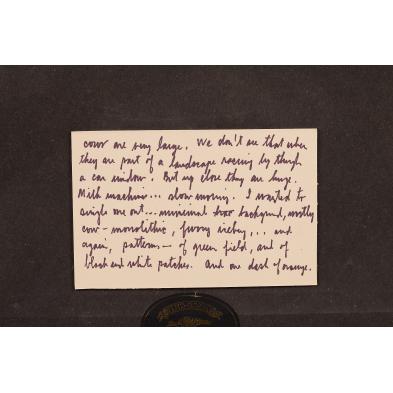 cows are very large. We don't see that when
they are part of a landscape racing by through
a car window. But up close they are huge.
Milk machines... slow moving. I wanted to
single one out... minimal background, mostly
cow - monolithic, furry ... and
again, patterns - of green field, and of
black and white patches. And one dash of orange.